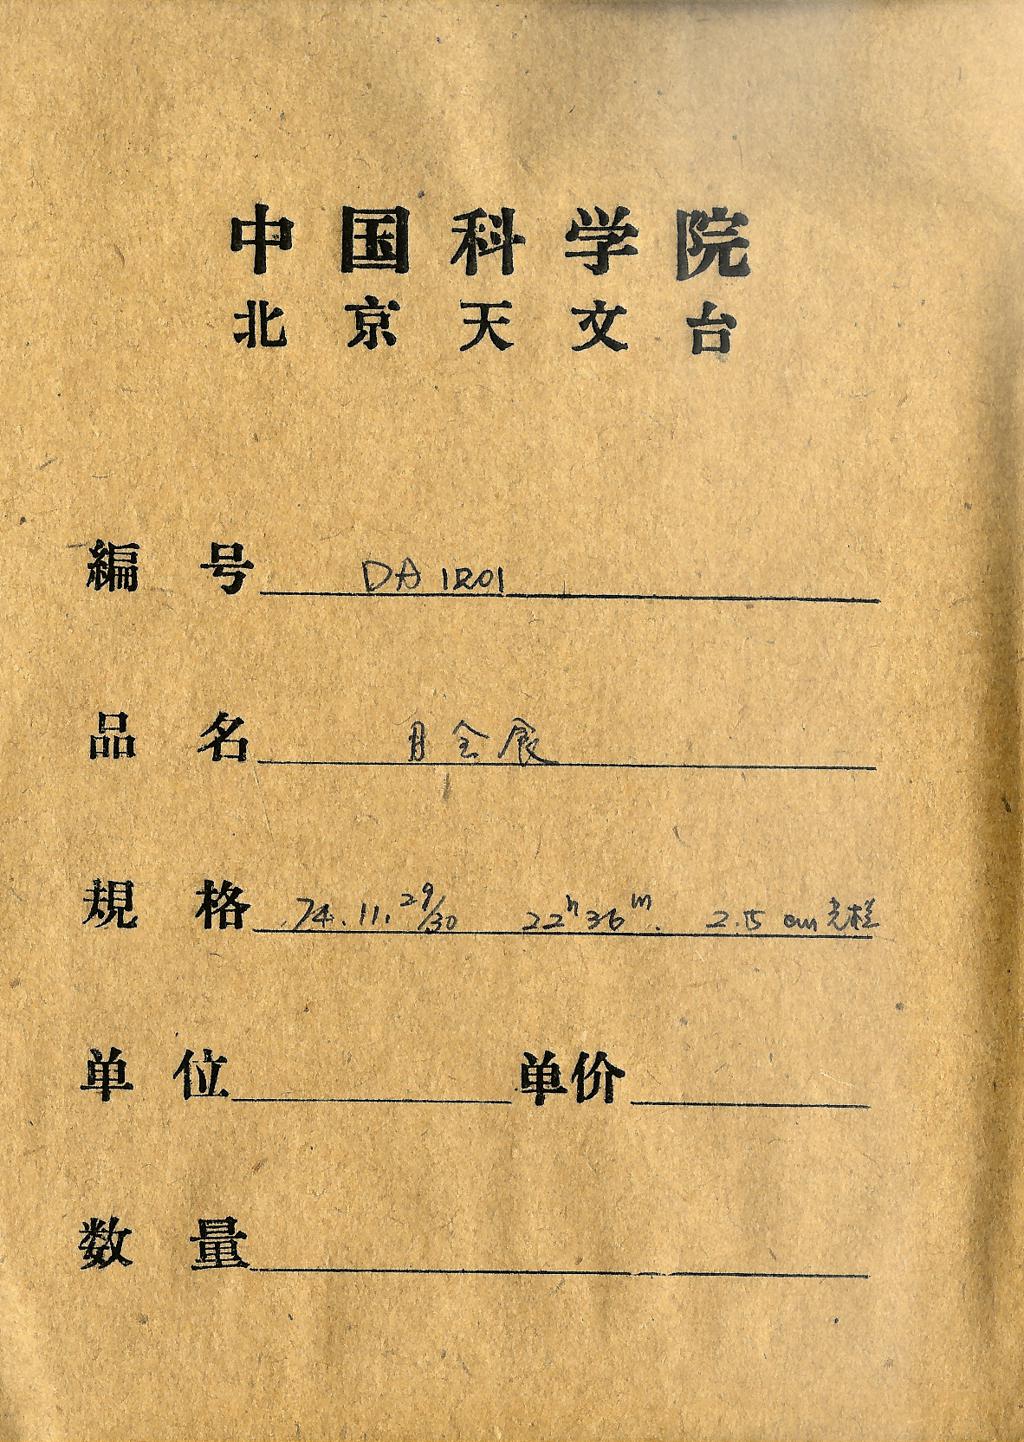 中国科学院
北京天文台
編号 DA 1201
品名 月全食
規格 74.11.29/30 22h36m. 2.5 cm光栏
单位 单价
数量